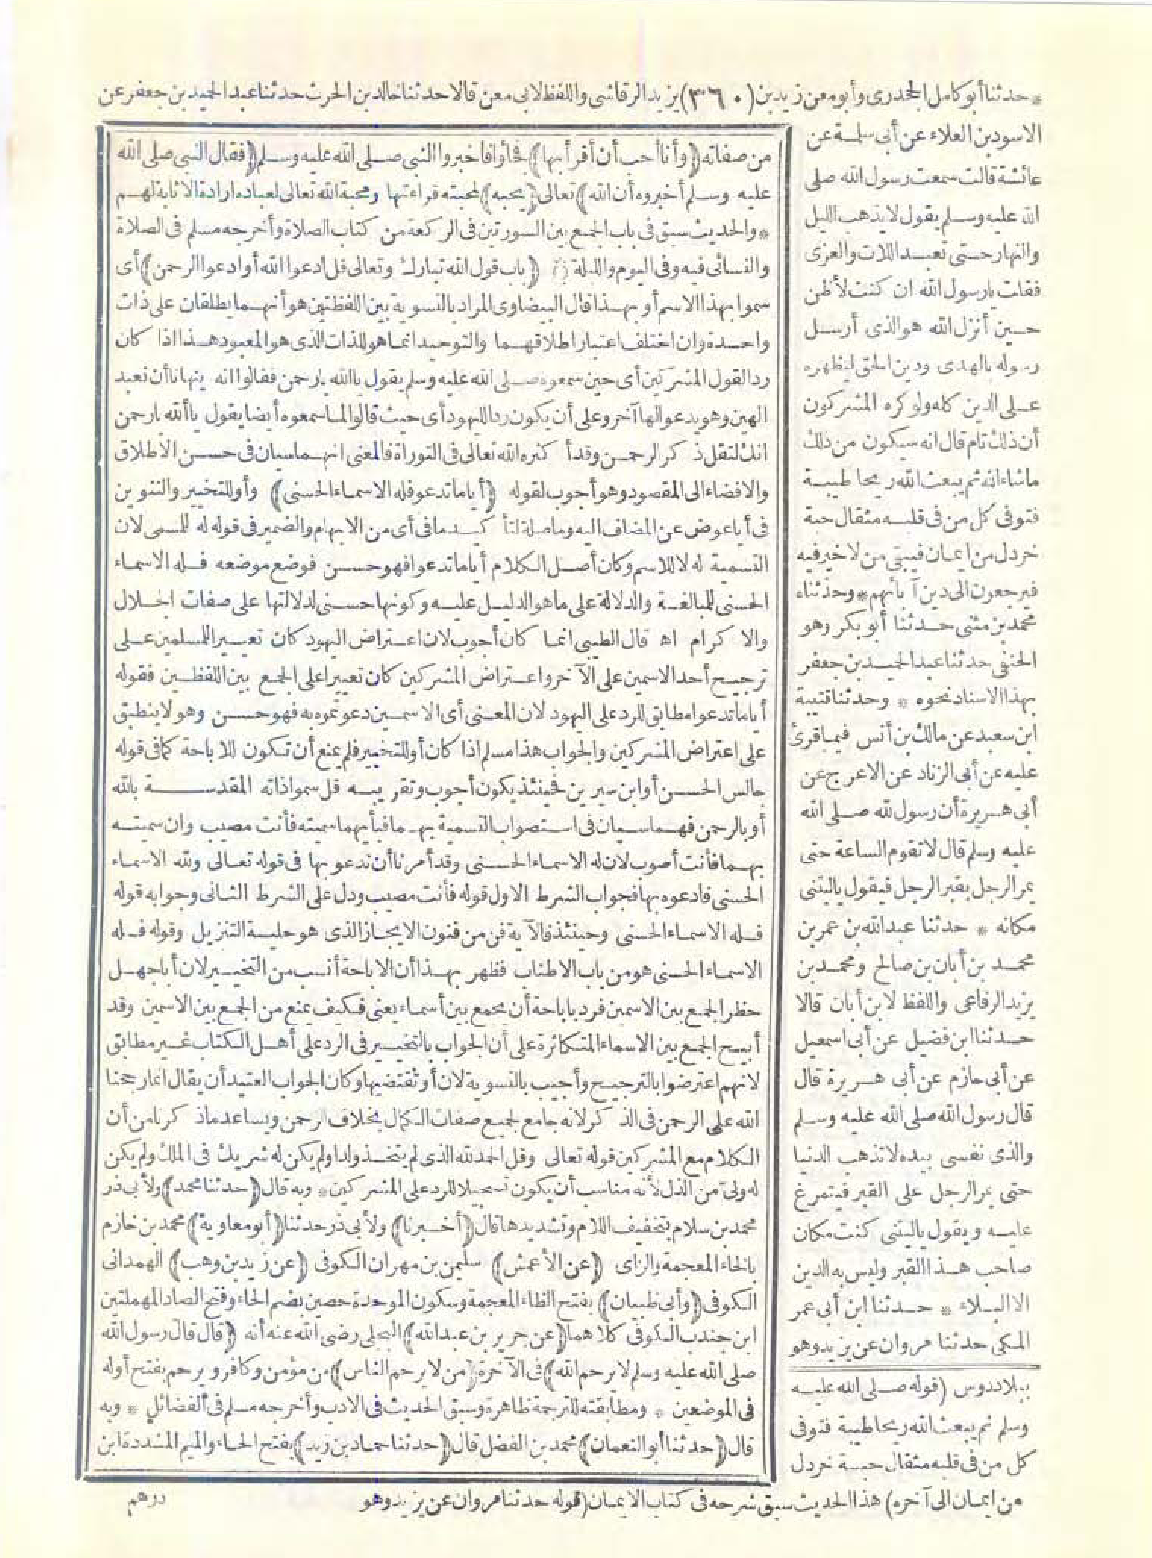 * حدثنا أبو كامل الجحدري وأبو معن زيد بن (٣٦٠) يزيد الرقاشي واللفظ لابي معن قالا حدثنا خالد بن الحرث حدثنا عبد الحميد بن جعفر عن
الاسود بن العلاء عن أبي سلمة عن
عائشة قالت سمعت رسول الله صلى
الله عليه وسلم يقول لا يذهب الليل
والنهار حتى تعبد اللات والعزى
فقلت يا رسول الله ان كنت لأظن
حين أنزل الله هو الذي أرسل
رسوله بالهدى ودين الحق ليظهره
على الدين كله ولو كره المشركون
أن ذلك تام قال انه سيكون من ذلك
ما شاء الله ثم يبعث الله ريحا طيبة
فتوفي كل من في قلبه مثقال حبة
خردل من ايمان فيبقى من لا خير فيه
فيرجعون الى دين آبائهم * وحدثناه
محمد بن مثنى حدثنا أبو بكر وهو
الحنفي حدثنا عبد الحميد بن جعفر
بهذا الاسناد نحوه * وحدثنا قتيبة
ابن سعيد عن مالك بن أنس فيما قرئ
عليه عن أبي الزناد عن الاعرج عن
أبي هريرة أن رسول الله صلى الله
عليه وسلم قال لا تقوم الساعة حتى
يمر الرجل بقبر الرجل فيقول ياليتني
مكانه * حدثنا عبد الله بن عمر بن
محمد بن أبان بن صالح ومحمد بن
يزيد الرفاعي واللفظ لابن أبان قالا
حدثنا ابن فضيل عن أبي اسمعيل
عن أبي حازم عن أبي هريرة قال
قال رسول الله صلى الله عليه وسلم
والذي نفسي بيده لا تذهب الدنيا
حتى يمر الرجل على القبر فيتمرغ
عليه ويقول ياليتني كنت مكان
صاحب هذا القبر وليس به الدين
الا البلاء * حدثنا ابن أبي عمر
المكي حدثنا مروان عن يزيد وهو
(قوله صلى الله عليه
وسلم ثم يبعث الله ريحا طيبة فتوفي
كل من في قلبه مثقال حبة خردل
من ايمان الى آخره) هذا الحديث سبق شرحه في كتاب الايمان (قوله حدثنا مروان عن يزيد وهو
من صفاته (وأنا أحب أن أقرأ بها) فجاؤا فاخبروا النبي صلى الله عليه وسلم (فقال النبي صلى الله
عليه وسلم أخبروه أن الله) تعالى (يحبه) لمحبته قراءتها ومحبة الله تعالى لعباده ارادة الاثابة لهم
* والحديث سبق في باب الجمع بين السورتين في الركعة من كتاب الصلاة وأخرجه مسلم في الصلاة
والنسائي فيه وفي اليوم والليلة (باب قول الله تبارك وتعالى قل ادعوا الله أو ادعوا الرحمن) أي
سموا بهذا الاسم أو بهذا قال البيضاوي المراد بالتسوية بين اللفظين هو أنهما يطلقان على ذات
واحدة وان اختلف اعتبار اطلاقهما والتوحيد انما هو للذات الذي هو المعبود هذا اذا كان
ردا لقول المشركين أي حين سمعوه صلى الله عليه وسلم يقول يا الله يا رحمن فقالوا انه ينهانا أن نعبد
الهين وهو يدعو الها آخر وعلى أن يكون ردا لليهود أي حيث قالوا لما سمعوه أيضا يقول يا ألله يا رحمن
انك لتقل ذكر الرحمن وقد أكثره الله تعالى في التوراة فالمعنى انهما سيان في حسن الاطلاق
والافضاء الى المقصود وهو أجوب لقوله (أيا ما تدعو فله الاسماء الحسنى) وأو للتخيير والتنوين
في أيا عوض عن المضاف اليه وما صلة لتأكيد ما في أي من الابهام والضمير في قوله له للمسمى لان
التسمية له لا للاسم وكان أصل الكلام أيا ما تدعوا فهو حسن فوضع موضعه فله الاسماء
الحسنى للمبالغة والدلالة على ما هو الدليل عليه وكونها حسنى لدلالتها على صفات الجلال
والاكرام اه قال الطيبي انما كان أجوب لان اعتراض اليهود كان تعييرا للمسلمين على
ترجيح أحد الاسمين على الآخر واعتراض المشركين كان تعييرا على الجمع بين اللفظين فقوله
أيا ما تدعوا مطابق للرد على اليهود لان المعنى أي الاسمين دعوتموه به فهو حسن وهو لا ينطبق
على اعتراض المشركين والجواب هذا مسلم اذا كان أو للتخيير فلم يمنع أن تكون للاباحة كما في قوله
جالس الحسن أو ابن سيرين فحينئذ يكون أجوب وتقريبه قل سموا ذاته المقدسة بالله
أو بالرحمن فهما سيان في استصواب التسمية بهما فبأيهما سميته فأنت مصيب وان سميته
بهما فأنت أصوب لان له الاسماء الحسنى وقد أمرنا أن ندعو بها في قوله تعالى ولله الاسماء
الحسنى فادعوه بها فجواب الشرط الاول قوله فأنت مصيب ودل على الشرط الثاني وجوابه قوله
فله الاسماء الحسنى وحينئذ فالآية فن من فنون الايجاز الذي هو حلية التنزيل وقوله فله
الاسماء الحسنى هو من باب الاطناب فظهر بهذا أن الاباحة أنسب من التخيير لان أبا جهل
حظر الجمع بين الاسمين فرد باباحة أن يجمع بين أسماء يعني فكيف يمنع من الجمع بين الاسمين وقد
أبيح الجمع بين الاسماء المتكاثرة على أن الجواب بالتخيير في الرد على أهل الكتاب غير مطابق
لانهم اعترضوا بالترجيح وأجيب بالتسوية لان أو تقتضيها وكان الجواب العتيد أن يقال انما رجحنا
الله على الرحمن في الذكر لانه جامع لجميع صفات الكمال بخلاف الرحمن ويساعد ما ذكرنا من أن
الكلام مع المشركين قوله تعالى وقل الحمد لله الذي لم يتخذ ولدا ولم يكن له شريك في الملك ولم يكن
له ولي من الذل لأنه مناسب أن يكون تسجيلا للرد على المشركين * وبه قال (حدثنا محمد) ولأبي ذر
محمد بن سلام بتخفيف اللام وتشديدها قال (أخبرنا) ولأبي ذر حدثنا (أبو معاوية) محمد بن خازم
بالخاء المعجمة والزاي (عن الأعمش) سليمن بن مهران الكوفي (عن زيد بن وهب) الهمداني
الكوفي (وأبي ظبيان) بفتح الظاء المعجمة وسكون الموحدة حصين بضم الحاء وفتح الصاد المهملتين
ابن جندب الكوفي كلاهما (عن جرير بن عبد الله) البجلي رضي الله عنه أنه (قال قال رسول الله
صلى الله عليه وسلم لا يرحم الله) في الآخرة (من لا يرحم الناس) من مؤمن وكافر ويرحم بفتح أوله
في الموضعين * ومطابقته للترجمة ظاهرة وسبق الحديث في الادب وأخرجه مسلم في الفضائل * وبه
قال (حدثنا أبو النعمان) محمد بن الفضل قال (حدثنا حماد بن زيد) بفتح الحاء والميم المشددة ابن
درهم